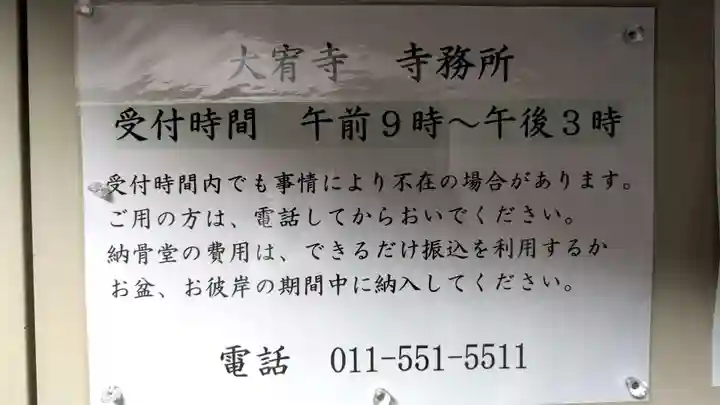 大宥寺　寺務所
受付時間　午前９時～午後３時
受付時間内でも事情により不在の場合があります。
ご用の方は、電話してからおいでください。
納骨堂の費用は、できるだけ振込を利用するか
お盆、お彼岸の期間中に納入してください。
電話　011-551-5511